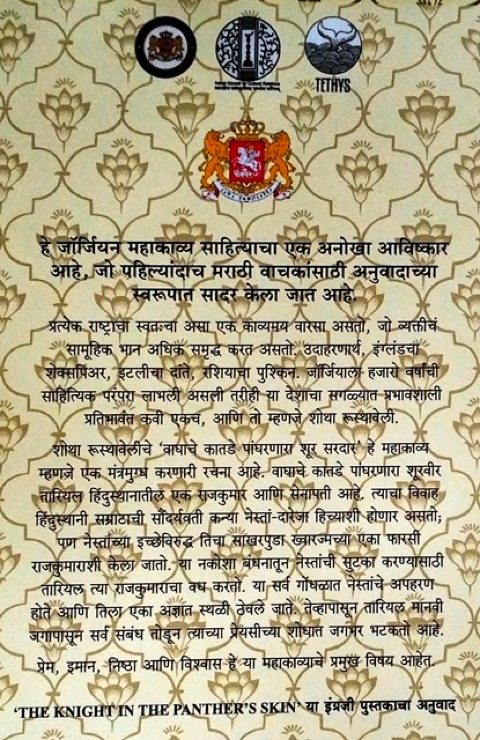 TETHYS
हे जॉर्जियन महाकाव्य साहित्याचा एक अनोखा आविष्कार
आहे, जो पहिल्यांदाच मराठी वाचकांसाठी अनुवादाच्या
स्वरूपात सादर केला जात आहे.
प्रत्येक राष्ट्राचा स्वतःचा असा एक काव्यमय वारसा असतो, जो व्यक्तीचं
सामूहिक भान अधिक समृद्ध करत असतो. उदाहरणार्थ, इंग्लंडचा
शेक्सपिअर, इटलीचा दांते, रशियाचा पुश्किन. जॉर्जियाला हजारो वर्षांची
साहित्यिक परंपरा लाभली असली तरीही या देशाचा सगळ्यात प्रभावशाली
प्रतिभावंत कवी एकच, आणि तो म्हणजे शोथा रूस्थावेली.
शोथा रूस्थावेलीचे 'वाघाचे कातडे पांघरणारा शूर सरदार' हे महाकाव्य
म्हणजे एक मंत्रमुग्ध करणारी रचना आहे. वाघाचे कातडे पांघरणारा शूरवीर
तारियल हिंदुस्थानातील एक राजकुमार आणि सेनापती आहे. त्याचा विवाह
हिंदुस्थानी सम्राटाची सौंदर्यवती कन्या नेस्तां-दारेजा हिच्याशी होणार असतो;
पण नेस्तांच्या इच्छेविरुद्ध तिचा साखरपुडा ख्वारज्मच्या एका फारसी
राजकुमाराशी केला जातो. या नकोशा बंधनातून नेस्तांची सुटका करण्यासाठी
तारियल त्या राजकुमाराचा वध करतो. या सर्व गोंधळात नेस्तांचे अपहरण
होते आणि तिला एका अज्ञात स्थळी ठेवले जाते. तेव्हापासून तारियल मानवी
जगापासून सर्व संबंध तोडून त्याच्या प्रेयसीच्या शोधात जगभर भटकतो आहे.
प्रेम, इमान, निष्ठा आणि विश्वास हे या महाकाव्याचे प्रमुख विषय आहेत.
'THE KNIGHT IN THE PANTHER'S SKIN' या इंग्रजी पुस्तकाचा अनुवाद